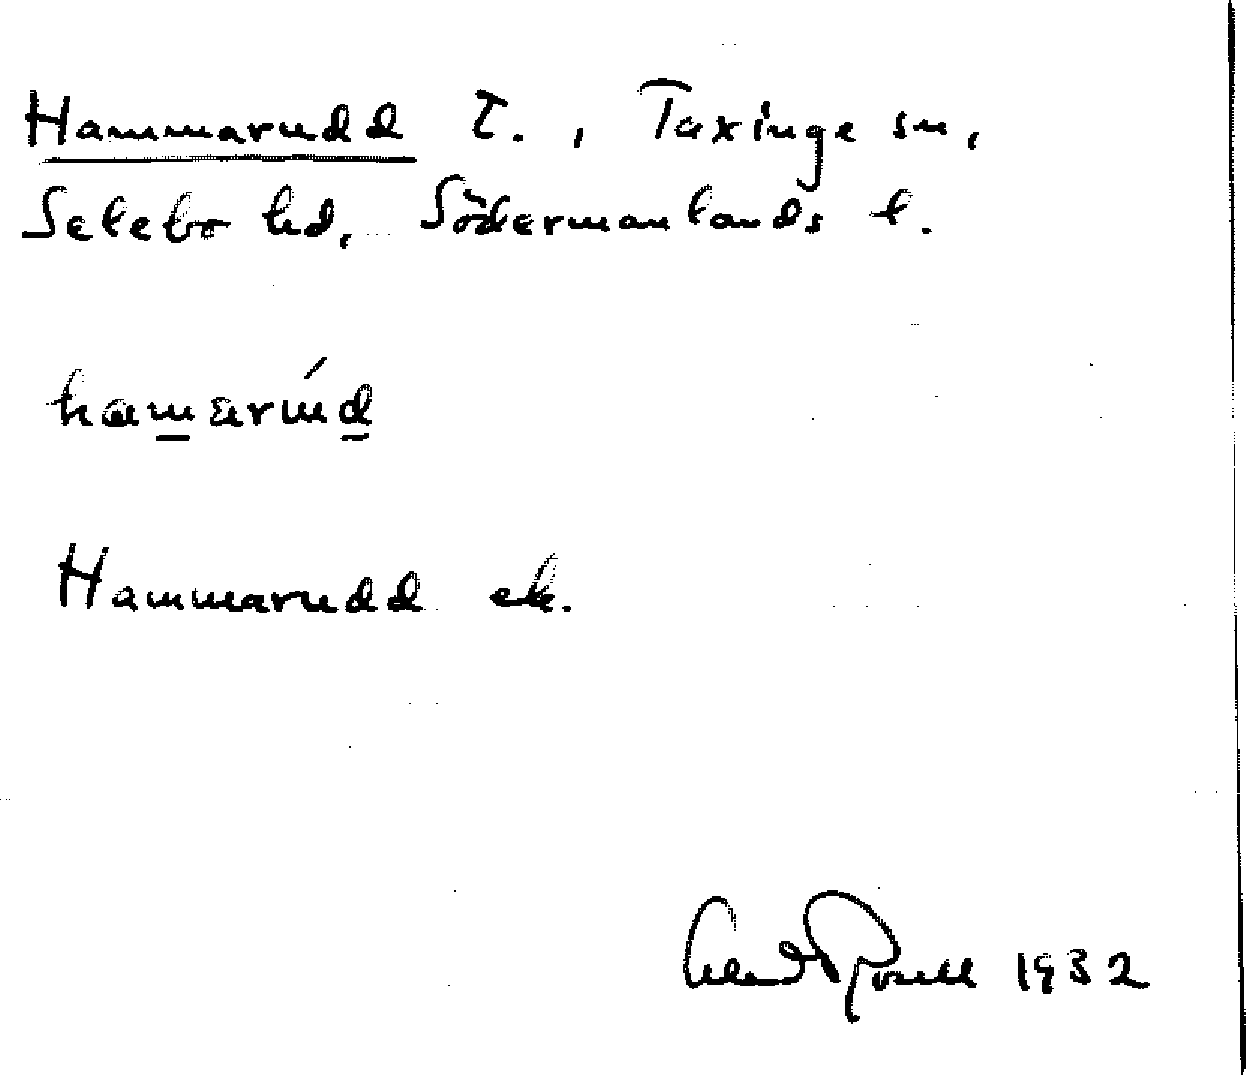 Hammarudd T., Taxinge sn,
Selebo hd, Södermanlands l.
Hammarudd ek.
1932